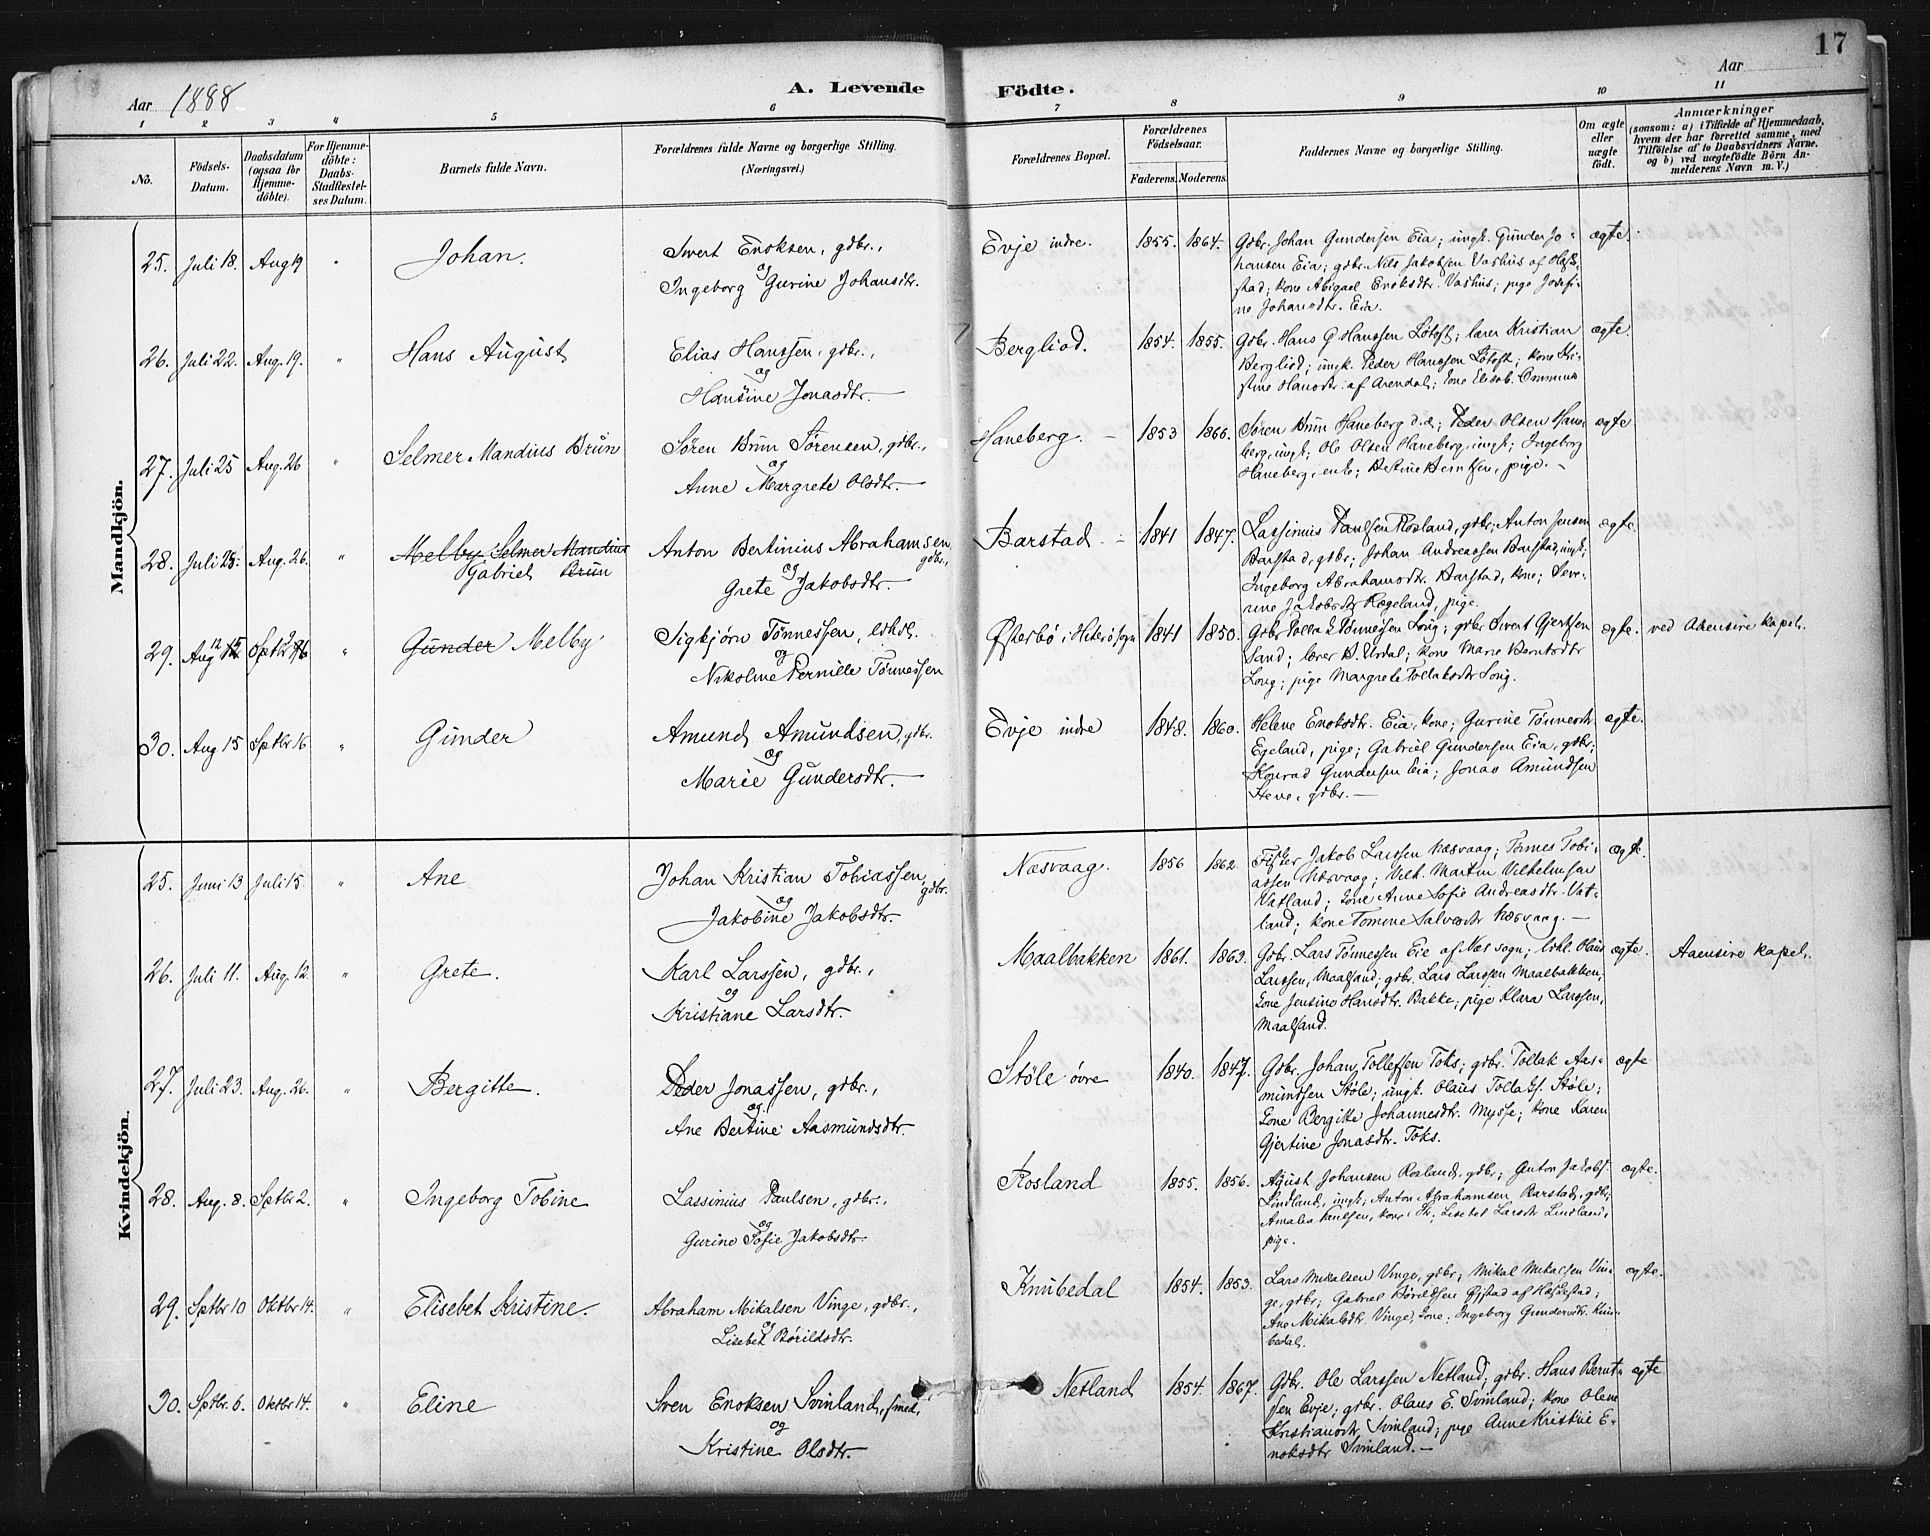 17
Aar 1888
A. Levende Födte.
Aar
1 2 3 4 5 6 7 8 9 10 11
No.
Födsels-Datum.
Daabsdatum (ogsaa for Hjemme-döbte).
For Hjemme-döbte: Daabs-Stadfæstelses Datum.
Barnets fulde Navn.
Forældrenes fulde Navne og borgerlige Stilling.
(Næringsvei.)
Forældrenes Bopæl.
Forældrenes Födselsaar.
Faderens. Moderens.
Faddernes Navne og borgerlige Stilling.
Om ægte eller uægte födt.
Anmærkninger
(saasom: a) i Tilfælde af Hjemmedaab, hvem der har forrettet samme, med Tilföielse af to Daabsvidners Navne, og b) ved uægtefödte Börn Anmelderens Navn m. V.)
Mandkjön.
25. Juli 18. Aug 19 " Johan. Sivert Enoksen, gdbr., og Ingeborg Gurine Johansdtr. Evje indre. 1855. 1864. Gdbr. Johan Gundersen Eia; ungk. Gunder Jo-
hansen Eia; gdbr. Nils Jakobsen Vashus af Hæske-
stad; kone Abigael Enoksdtr. Vashus; pige Josefi-
ne Johansdtr. Eia. ægte.
26. Juli 22. Aug. 19. " Hans August Elias Hanssen, gdbr., og Hansine Jonasdtr. Bergliod. 1854. 1855. Gdbr. Hans G Hanssen Løtoft; lærer Kristian
Bergliod; ungk. Peder Hanssen Løtoft; kone Kri-
stine Hansdtr. af Arendal; Elisab. Ommun ægte.
27. Juli 25 Aug. 26 " Selmer Mandius Brun Søren Brun Sørensen, gdbr., og Anne Margrete Olsdtr. Haneberg. 1853 1866. Søren Brun Haneberg d.æ; Peder Olsen Hane-
berg, ungk; Ole Olsen Haneberg, ungk; Ingeborg
Haneberg, enke; Berntsen, pige. ægte
28. Juli 25. Aug. 26. " Melby Selmer Mandius Brun Gabriel Anton Bertinius Abrahamsen gdbr., og Grete Jakobsdtr. Barstad 1841 1847. Lassinius Paulsen Rosland, gdbr; Anton Jensen
Barstad, gdbr; Johan Andreassen Barstad, ungk;
Ingeborg Abrahamsdtr. Barstad, kone; Seve-
rine Jakobsdtr Rægeland, pige. ægte.
29. Aug 12 Sptbr 9 " Gunder Melby Sigbjørn Tønnessen, og Nikoline Pernille Tønnessen Østerbø i Hiterø sogn 1841 1850. Gdbr Tollak Tønnessen Long; gdbr Sivert Gjertsen
Sand; lærer B. Urdal; kone Marie Berntsdtr
Long; pige Margrete Tollaksdtr Long. ægte. ved Aaensire kapel.
30. Aug 15 Sptbr 16 " Gunder Amund Amundsen, gdbr. og Marie Gundersdtr. Evje indre 1848. 1860. Helene Enoksdtr. Eia, kone; Gurine Tønnesdtr
Egeland, pige; Gabriel Gundersen Eia, gdbr;
Konrad Gundersen Eia; Jonas Amundsen
Steve, gdbr. ægte.
Kvindekjön.
25. Juni 13 Juli 15. " Ane Johan Kristian Tobiassen, gdbr. og Jakobine Jakobsdtr. Næsvaag. 1856 1862 Fisker Jakob Larssen Næsvaag; Tønnes Tobi-
assen Næsvaag; Vilh. Martin Vilhelmsen
Vatland; kone Anne Sofie Andreasdtr. Vat-
land; kone Tomine Salvesdtr Næsvaag. ægte.
26. Juli 11. Aug. 12. " Grete. Karl Larssen, gdbr., og Kristiane Larsdtr. Maalbakken 1861. 1863. Gdbr. Lars Tønnessen Eie af Næs sogn; Olaus
Larssen, Maalsand; gdbr. Lars Larssen Maalbakken;
kone Jensine Hansdtr. Bakke; pige Klara Larssen,
Maalsand. ægte. Aaensire kapel.
27. Juli 23. Aug. 26. " Bergitte. Peder Jonassen, gdbr., og Ane Bertine Aasmundsdtr. Støle øvre 1840. 1847. Gdbr. Johan Tollefsen Toks; gdbr. Tollak Aas-
mundsen Støle; ungk. Olaus Tollaks. Støle;
kone Bergitte Johannesdtr. Mysse; kone Karen
Gjertine Jonasdtr. Toks. ægte
28. Aug. 8. Sptbr 2. " Ingeborg Tobine Lassinius Paulsen, gdbr., og Gurine Sofie Jakobsdtr. Rosland 1855. 1856. Agust Johansen Rosland, gdbr; Anton Jakobs.
Lindland, ungk; Anton Abrahamsen Barstad, gdbr;
Amalia Paulsen, kone; Lisebet Larsdtr Lindland,
pige. ægte.
29. Sptbr 10 Oktbr 14. " Elisebet Kristine. Abraham Mikalsen Vinge, gdbr., og Lisebet Børildsdtr. Knubedal 1854. 1853. Lars Mikalsen Vinge, gdbr; Mikal Mikalsen Vin-
ge, gdbr; Gabriel Børildsen Øjstad af Hæskestad;
Ane Mikalsdtr. Vinge, kone; Ingeborg Gundersdtr. Knu-
bedal. ægte.
30. Sptbr. 6. Oktbr 14. " Eline Sven Enoksen Svinland, smed, og Kristine Olsdtr. Netland 1854. 1867. Gdbr. Ole Larssen Netland; gdbr. Hans Bernt-
sen Evje; gdbr. Olaus E. Svinland; kone Olene
Kristiansdtr Svinland; pige Anne Kristine E-
noksdtr Svinland. ægte